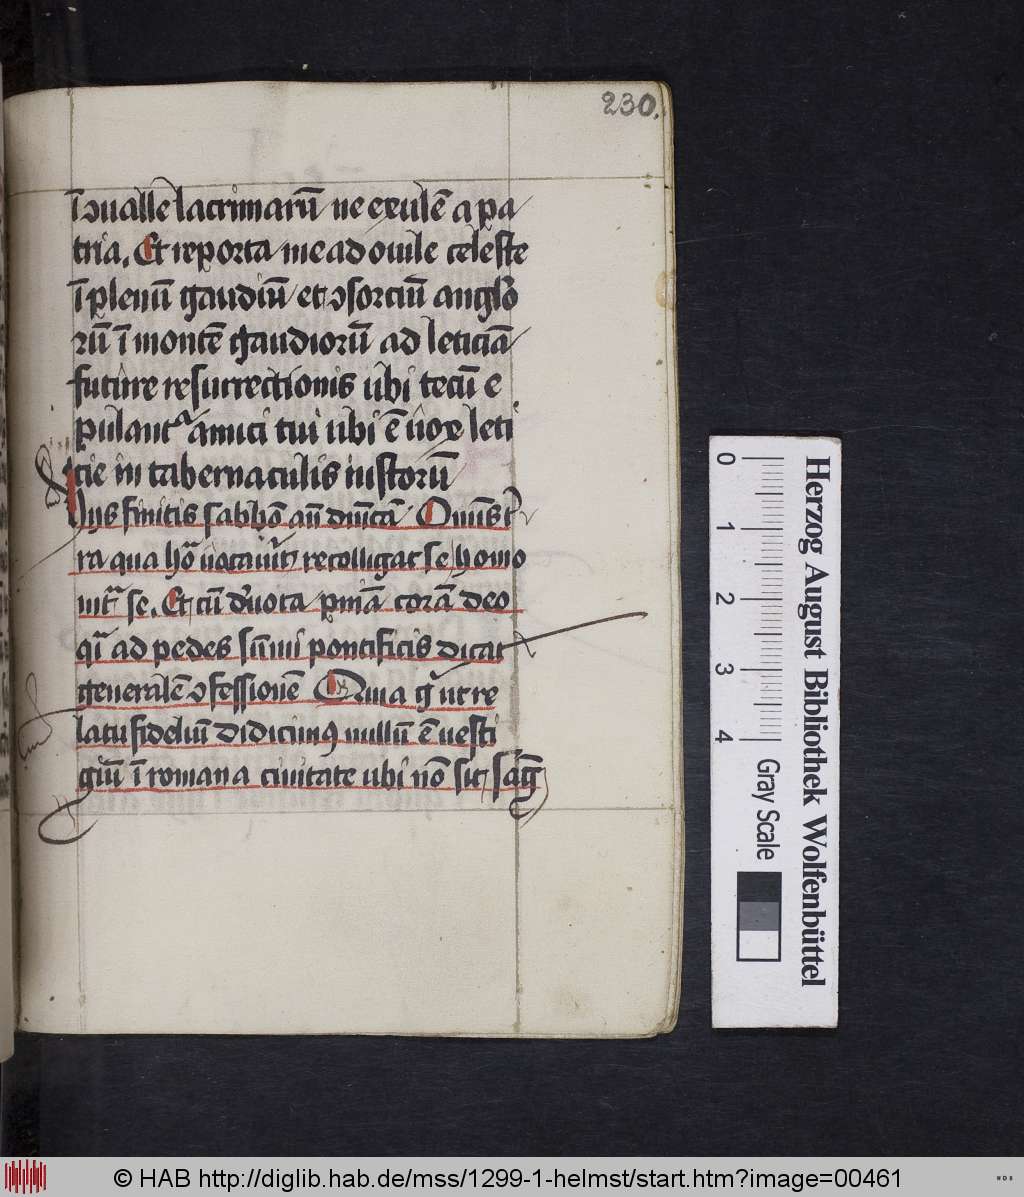 230.
ī ꝯualle lacrimarū ne exulē a pa
tria. Et reporta me ad ouile celeste
ī plenū gaudiū et ꝯsorciū anglo
rū ī montē gaudiorū ad leticiā
future resurrectionis ubi tecū e
pulant᷑ amici tui ubi ē uox leti
cie in tabernaculis iustorū
Hys finitis sabbō aū
ra qua hō recolligat se homo
se. Et cū deuota corā deo
ad pedes sūmi pontificis dicat
generalē ꝯfessionē Quia g͛ ut re
latu fideliū didicimꝰ nullū ē uesti
giū ī romana ciuitate ubi nō sit
Herzog August Bibliothek Wolfenbüttel
0 1 2 3 4 Gray Scale
© HAB http://diglib.hab.de/mss/1299-1-helmst/start.htm?image=00461